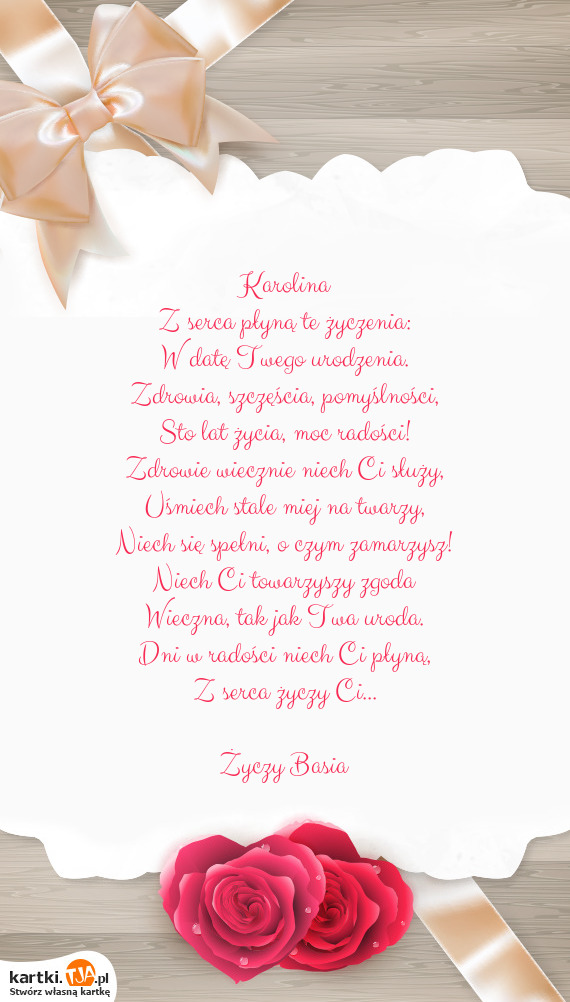 Karolina
Z serca płyną te życzenia:
W datę Twego urodzenia.
Zdrowia, szczęścia, pomyślności,
Sto lat życia, moc radości!
Zdrowie wiecznie niech Ci służy,
Uśmiech stale miej na twarzy,
Niech się spełni, o czym zamarzysz!
Niech Ci towarzyszy zgoda
Wieczna, tak jak Twa uroda.
Dni w radości niech Ci płyną,
Z serca życzy Ci...
Życzy Basia
kartki.TJA.pl
Stwórz własną kartkę